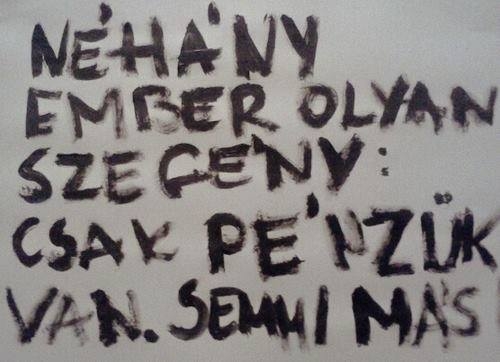 NÉHÁNY
EMBER OLYAN
SZEGÉNY:
CSAK PÉNZÜK
VAN. SEMMI MÁS!